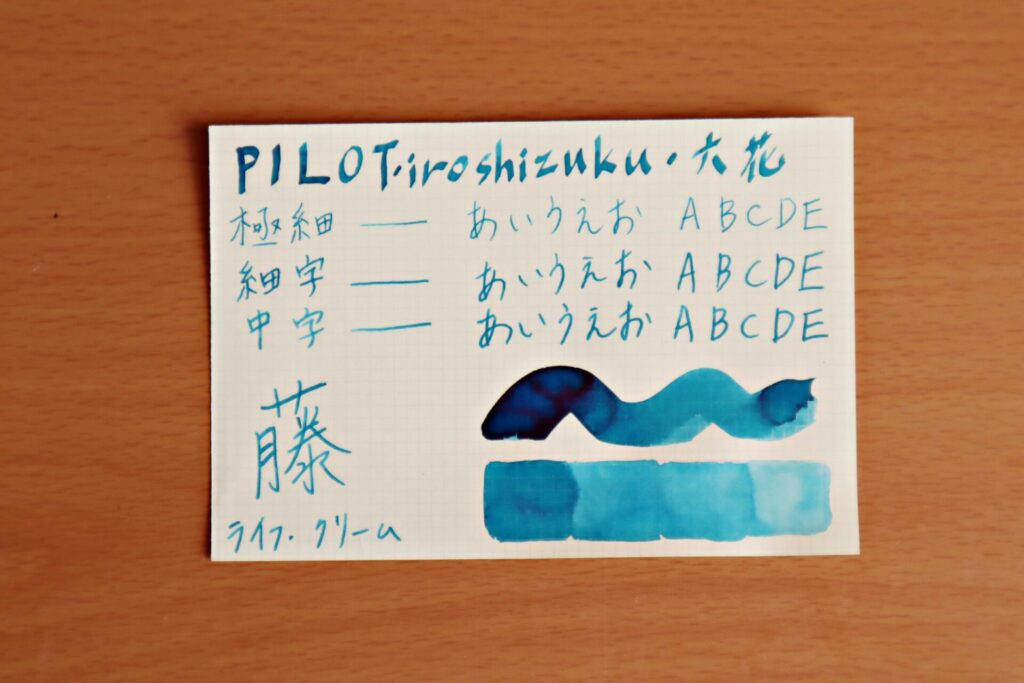 PILOT・iroshizuku・六花
極細 ― あいうえお ABCDE
細字 ― あいうえお ABCDE
中字 ― あいうえお ABCDE
藤
ライフ・クリーム